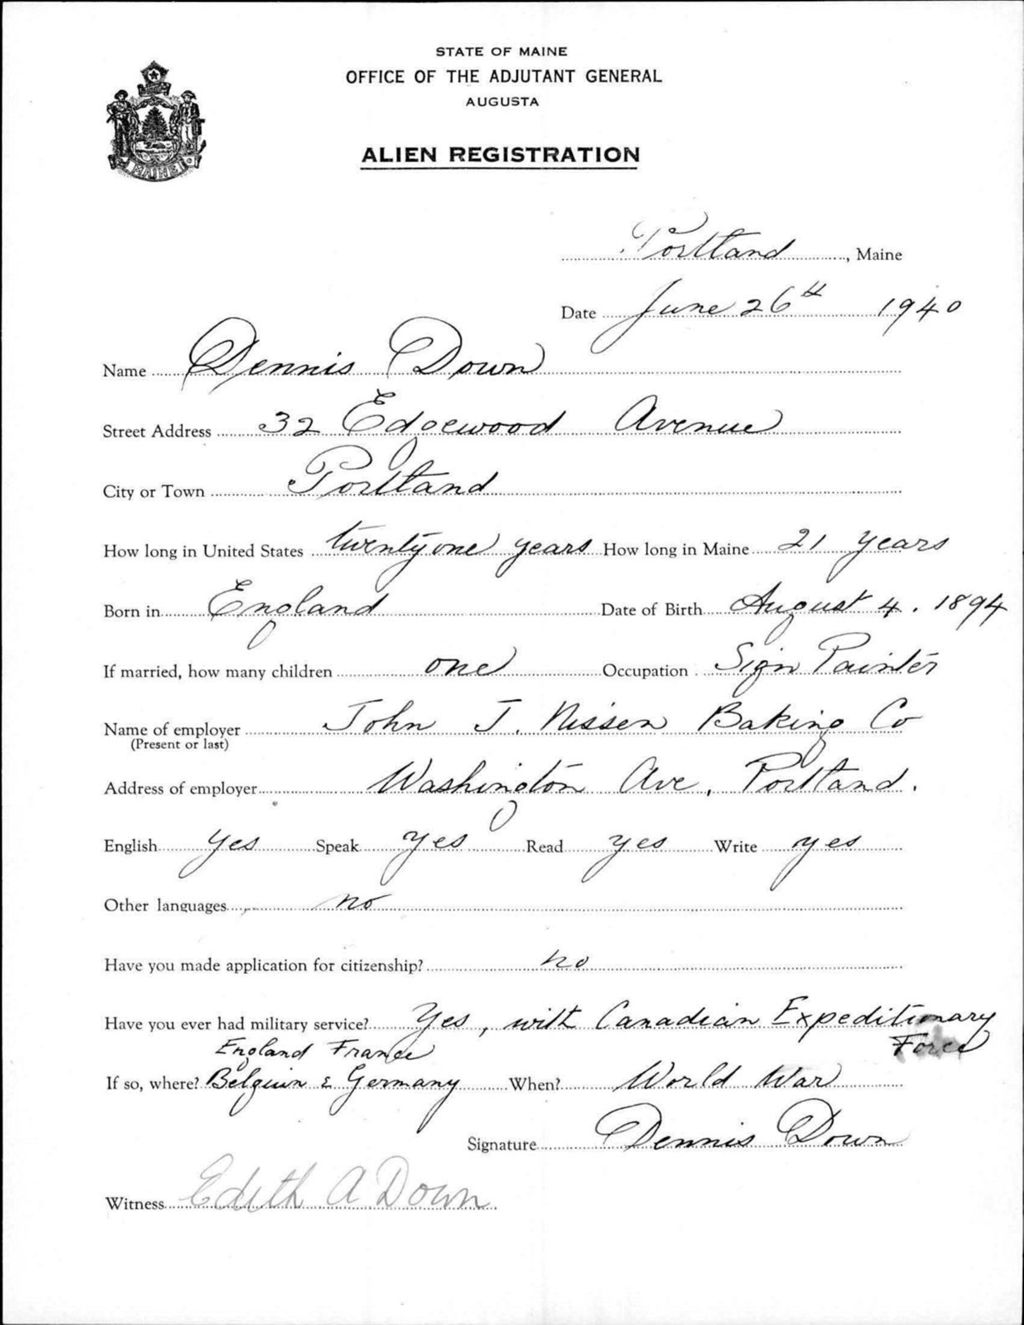 STATE OF MAINE
OFFICE OF THE ADJUTANT GENERAL
AUGUSTA
ALIEN REGISTRATION
Portland, Maine
Date June 26th 1940
Name Dennis Down
Street Address 32 Edgewood Avenue
City or Town Portland
How long in United States twenty one years How long in Maine 21 years
Born in England Date of Birth August 4. 1894
If married, how many children one Occupation Sign Painter
Name of employer John J. Nissen Baking Co
(Present or last)
Address of employer Washington Ave, Portland.
English yes Speak yes Read yes Write yes
Other languages no
Have you made application for citizenship? no
Have you ever had military service? Yes, with Canadian Expeditionary
England France Force
If so, where? Belgium & Germany When? World War
Signature Dennis Down
Witness Edith A Down
MAINE